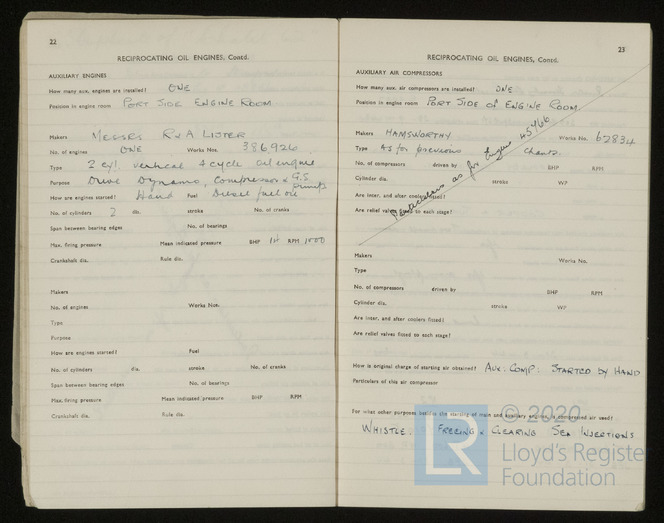 22
RECIPROCATING OIL ENGINES, Contd.
AUXILIARY ENGINES
How many aux. engines are installed? ONE
Position in engine room PORT SIDE ENGINE ROOM
Makers MESSRS R & A LISTER
No. of engines ONE Works Nos. 386926
Type 2 cyl. vertical 4 cycle oil engine
Purpose Drive Dynamo, Compressor & G.S. Pumps
How are engines started? Hand Fuel Diesel fuel oil
No. of cylinders 2 dia. stroke No. of cranks
Span between bearing edges No. of bearings
Max. firing pressure Mean indicated pressure BHP RPM 1000
Crankshaft dia. Rule dia.
Makers
No. of engines Works Nos.
Type
Purpose
How are engines started? Fuel
No. of cylinders dia. stroke No. of cranks
Span between bearing edges No. of bearings
Max. firing pressure Mean indicated pressure BHP RPM
Crankshaft dia. Rule dia.
23
RECIPROCATING OIL ENGINES, Contd.
AUXILIARY AIR COMPRESSORS
How many aux. air compressors are installed? ONE
Position in engine room PORT SIDE OF ENGINE ROOM
Makers HAMSWORTHY Works No. 62834
Type As for previous
No. of compressors driven by BHP RPM
Cylinder dia. stroke WP
Are inter. and after coolers fitted?
Are relief valves fitted to each stage?
Particulars as for Engine
Makers Works No.
Type
No. of compressors driven by BHP RPM
Cylinder dia. stroke WP
Are inter. and after coolers fitted?
Are relief valves fitted to each stage?
How is original charge of starting air obtained? AUX. COMP. STARTED BY HAND
Particulars of this air compressor
For what other purposes besides the starting of main and auxiliary engines is compressed air used?
WHISTLE. FREEING & CLEARING SEA INJECTIONS
© 2020
LR Lloyd's Register
Foundation